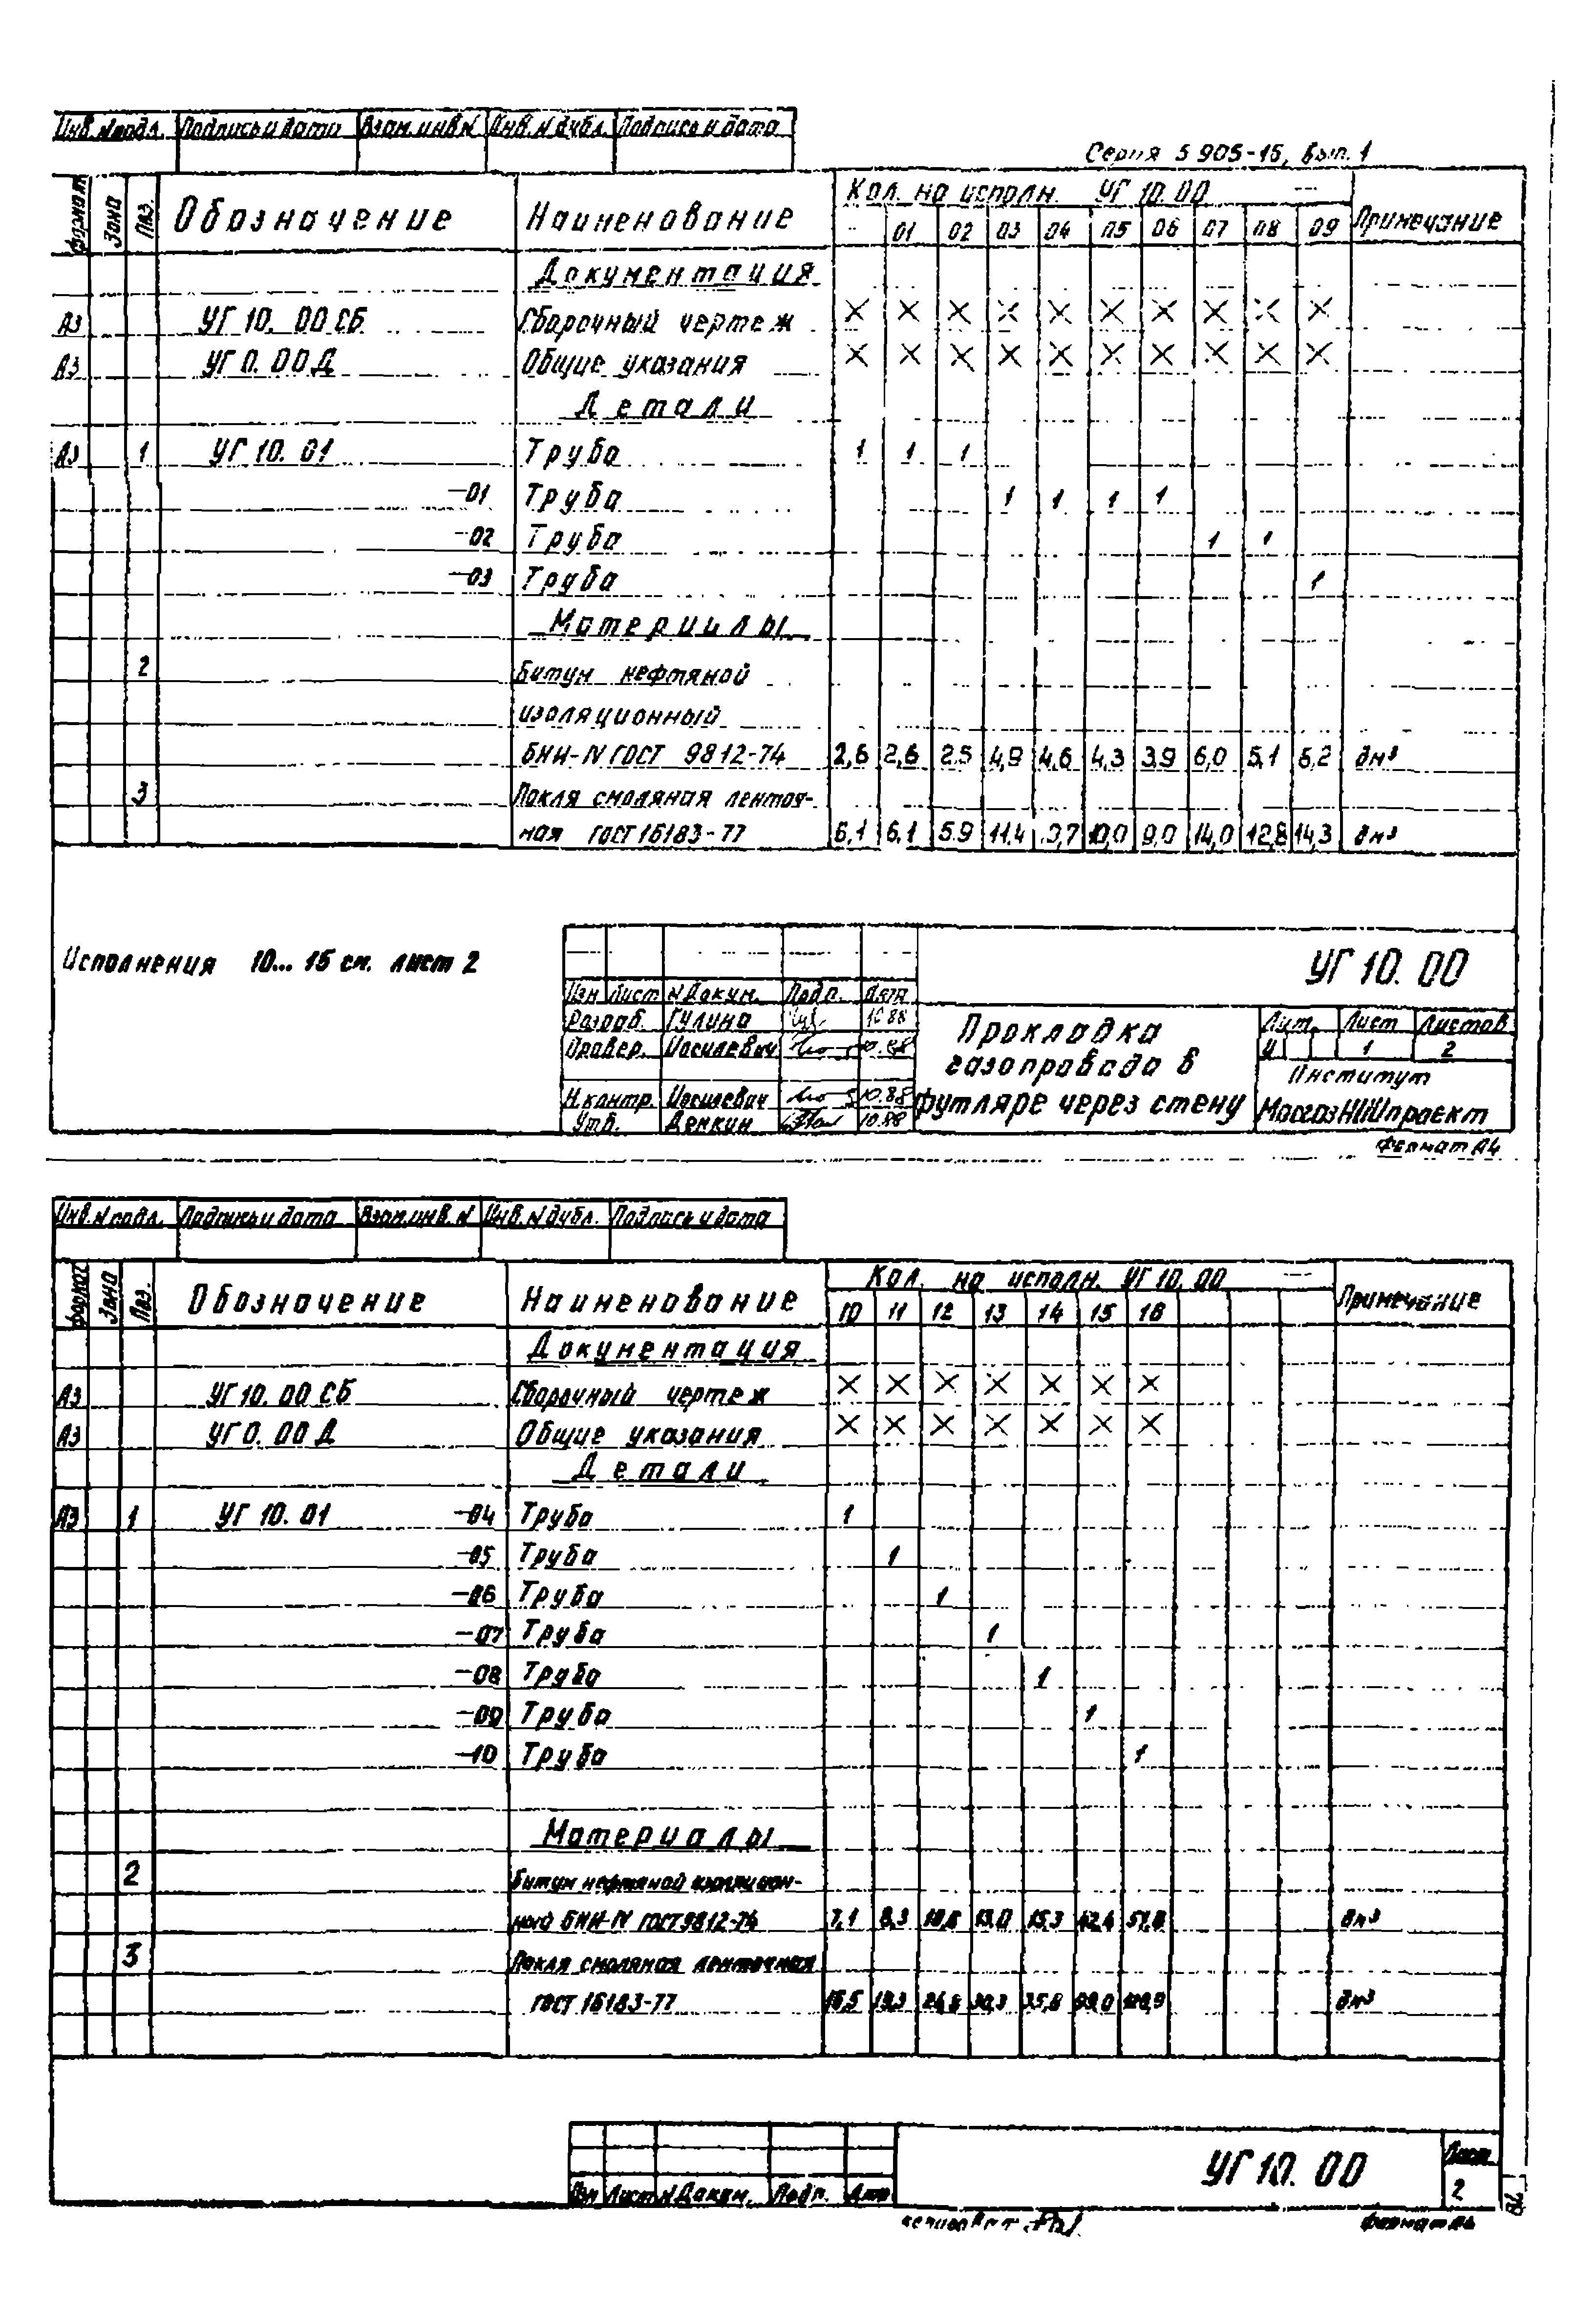 Инв. N подл. Подпись и дата Взам. инв. N Инв. N дубл. Подпись и дата
Серия 5 905-15, вып. 1
Формат Зона Поз. Обозначение Наименование Кол. на исполн. УГ 10.00 — Примечание
- 01 02 03 04 05 06 07 08 09
Документация
А3 УГ 10. 00 СБ Сборочный чертеж × × × × × × × × × ×
А3 УГ 0. 00 Д Общие указания × × × × × × × × × ×
Детали
А3 1 УГ 10. 01 Труба 1 1 1
-01 Труба 1 1 1 1
-02 Труба 1 1
-03 Труба 1
Материалы
2 Битум нефтяной
изоляционный
БНИ-IV ГОСТ 9812-74 2,6 2,6 2.5 4,9 4,6 4,3 3.9 6,0 5,1 6,2 дм³
3 Пакля смоляная ленточ-
ная ГОСТ 16183-77 6,1 6,1 5.9 11.4 10,0 9,0 14,0 12,8 14,3 дм³
Исполнения 10... 15 см. лист 2
УГ 10. 00
Изм Лист N Докум. Подп. Дата
Разраб. Гулина 10 88
Провер. Иосилевич 10.88
Н.контр. Иосилевич 10.88
Утв. Демкин 10.88
Прокладка
газопровода в
футляре через стену
Лит. Лист Листов
И 1 2
Институт
МосгазНИИпроект
Формат А4
Инв. N подл. Подпись и дата Взам. инв. N Инв. N дубл. Подпись и дата
Формат Зона Поз. Обозначение Наименование Кол. на исполн. УГ 10. 00 — Примечание
10 11 12 13 14 15 16
Документация
А3 УГ 10. 00 СБ Сборочный чертеж × × × × × × ×
А3 УГ 0. 00 Д Общие указания × × × × × × ×
Детали
А3 1 УГ 10. 01 -04 Труба 1
-05 Труба 1
-06 Труба 1
-07 Труба 1
-08 Труба 1
-09 Труба 1
-10 Труба 1
Материалы
2 Битум нефтяной изоляцион-
ный БНИ-IV ГОСТ 9812-74 7,1 8,3 13,0 15,3 дм³
3 Пакля смоляная ленточная
ГОСТ 16183-77 16,5 19,3 30,3 35,8 дм³
УГ 10. 00
Лист
2
Изм Лист N Докум. Подп. Дата
Формат А4